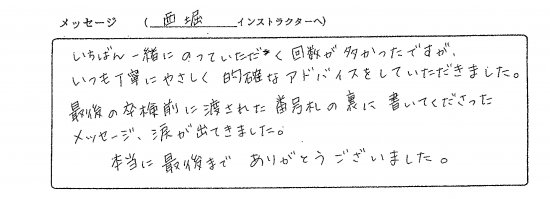 メッセージ （ 西堀 インストラクターへ）
いちばん一緒にのっていただく回数が多かったですが、
いつも丁寧にやさしく的確なアドバイスをしていただきました。
最後の卒検前に渡された番号札の裏に書いてくださった
メッセージ、涙が出てきました。
本当に最後まで ありがとうございました。